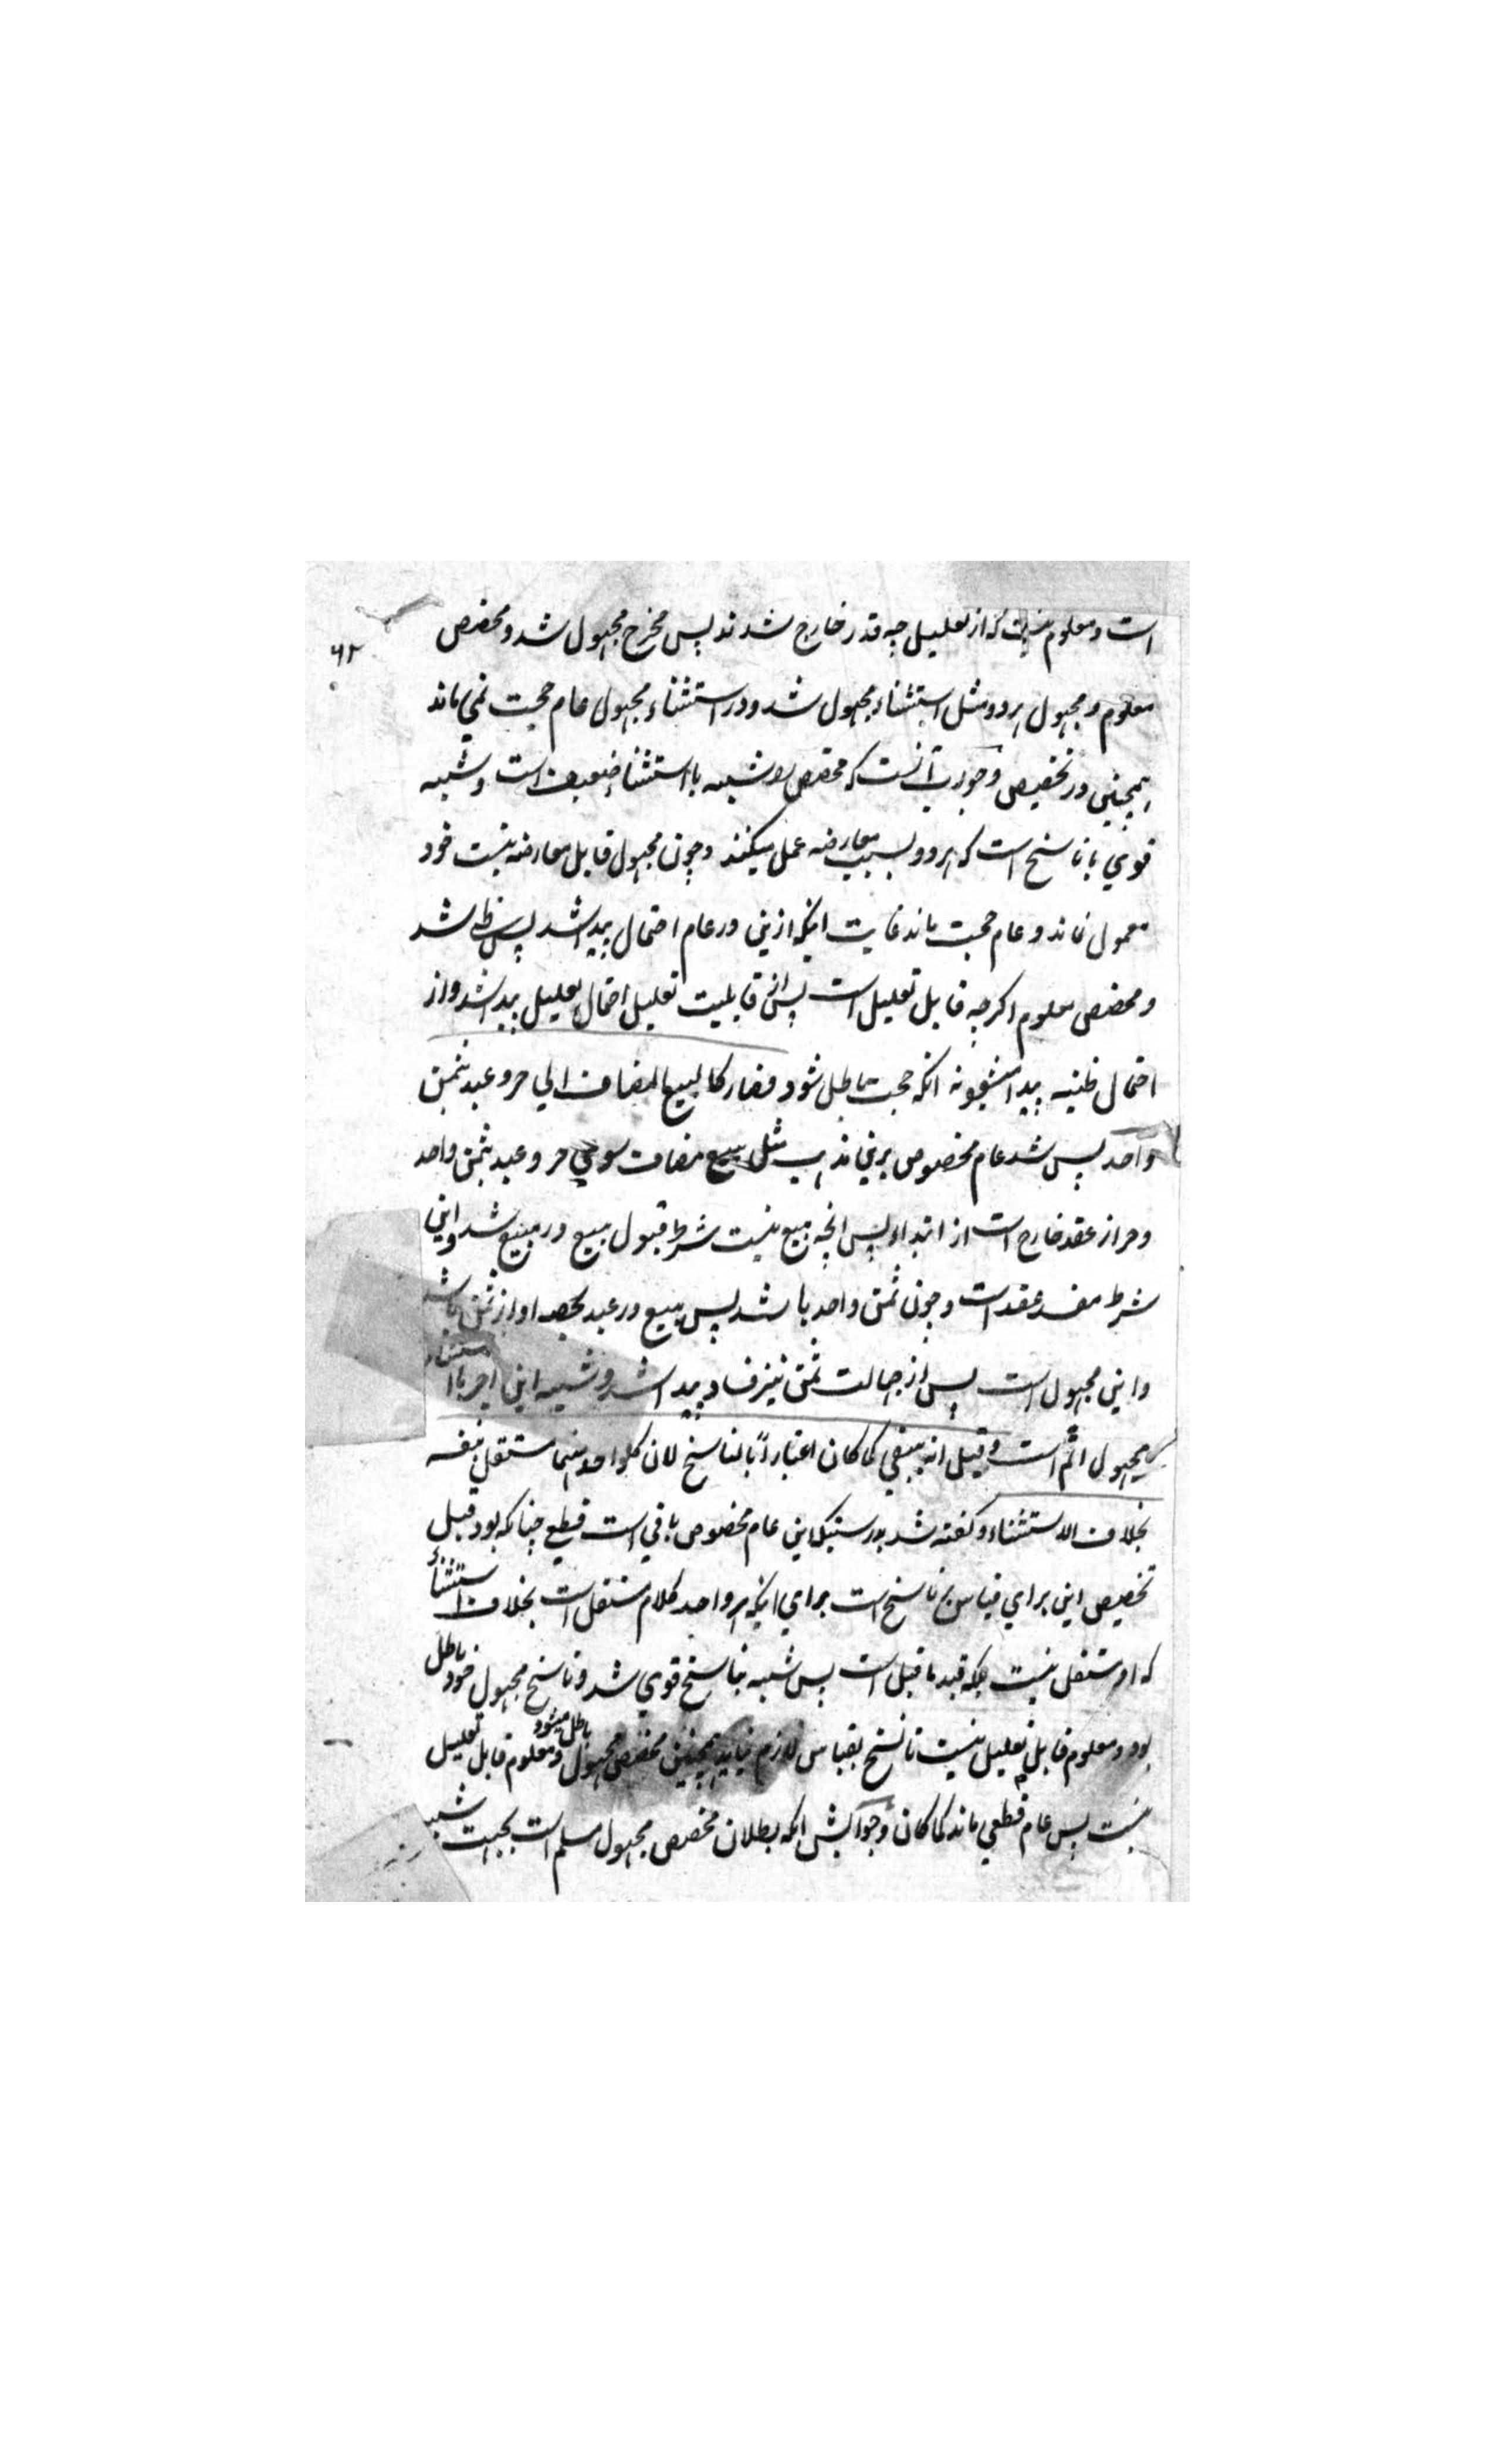 است و معلوم نیست که از تعلیل چه قدر خارج شدند پس مخرج مجهول شد و مخصص
۶۲
معلوم و مجهول هر دو مثل استثناء مجهول شد و در استثناء مجهول عام حجت نمی ماند
همچنین در تخصیص و جواب آنست که مخصص را شبیه با استثنا ضعیف است و شبیه
قوی با ناسخ است که هر دو بسبب معارضه عمل میکنند و چون مجهول قابل معارضه نیست خود
معمول نماند و عام حجت ماند غایت اینکه ازین در عام احتمال پیدا شد پس ظنی شد
و مخصص معلوم اگرچه قابل تعلیل است پس از قابلیت تعلیل احتمال تعلیل پیدا شد و از
احتمال ظنیه پیدا میشود نه انکه حجت باطل شود فصار کالبیع المضاف الی حر و عبد بثمن
واحد پس شد عام مخصوص برین مذهب مثل بیع مضاف سوی حر و عبد بثمن واحد
و حر از عقد خارج است از ابتداء پس انچه مبیع نیست شرط قبول بیع در مبیع شد و این
شرط مفسد عقد است و چون ثمن واحد باشد پس بیع در عبد بحصه او از ثمن باشد
و این مجهول است پس از جهالت ثمن نیز فساد پیدا شد و شبیه این اجر با استثناء
مجهول اتم است و قیل انه یبقی کما کان اعتباراً بالناسخ لان کلواحد منهما مستقل بنفسه
بخلاف الاستثناء و گفته شد بدرستیکه این عام مخصوص باقی است قطعی چنانکه بود قبل
تخصیص این برای قیاس بر ناسخ است برای اینکه هر واحد کلام مستقل است بخلاف استثناء
که او مستقل نیست بلکه قید ماقبل است پس شبیه بناسخ قوی شد و ناسخ مجهول خود باطل
بود و معلوم قابل تعلیل نیست تا نسخ بقیاس لازم نیاید همچنین مخصص مجهول باطل میشود و معلوم قابل تعلیل
نیست پس عام قطعی ماند کما کان و جوابش انکه بطلان مخصص مجهول مسلم است بجهت شبه